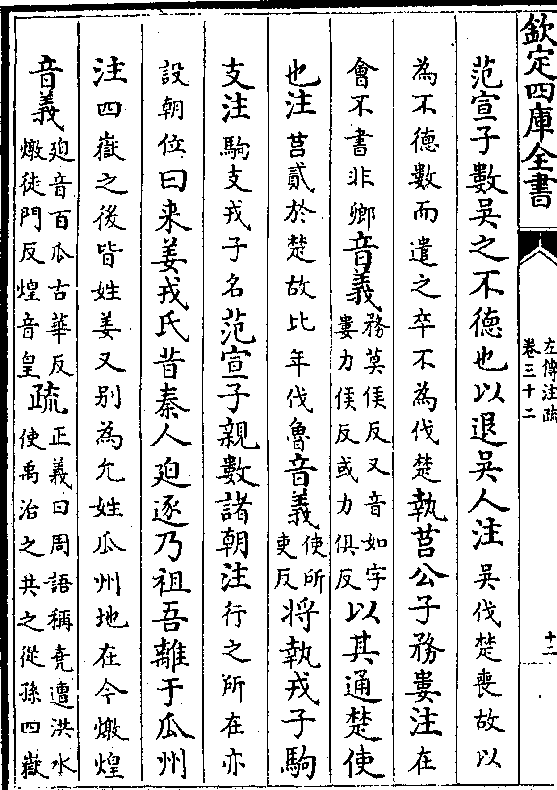 欽定四庫全書
左傳注疏
卷三十二
十二
范宣子數吳之不德也以退吳人注吳伐楚喪故以
為不德數而遣之卒不為伐楚執莒公子務婁注在
會不書非卿音義務莫侯反又音如字
婁力侯反或力俱反以其通楚使
也注莒貳於楚故比年伐魯音義使所
吏反將執戎子駒
支注駒支戎子名范宣子親數諸朝注行之所在亦
設朝位曰来姜戎氏昔秦人廹逐乃祖吾離于瓜州
注四嶽之後皆姓姜又别為允姓瓜州地在今燉煌
音義廹音百瓜古華反
燉徒門反煌音皇疏正義曰周語稱堯遭洪水
使禹治之共之從孫四嶽